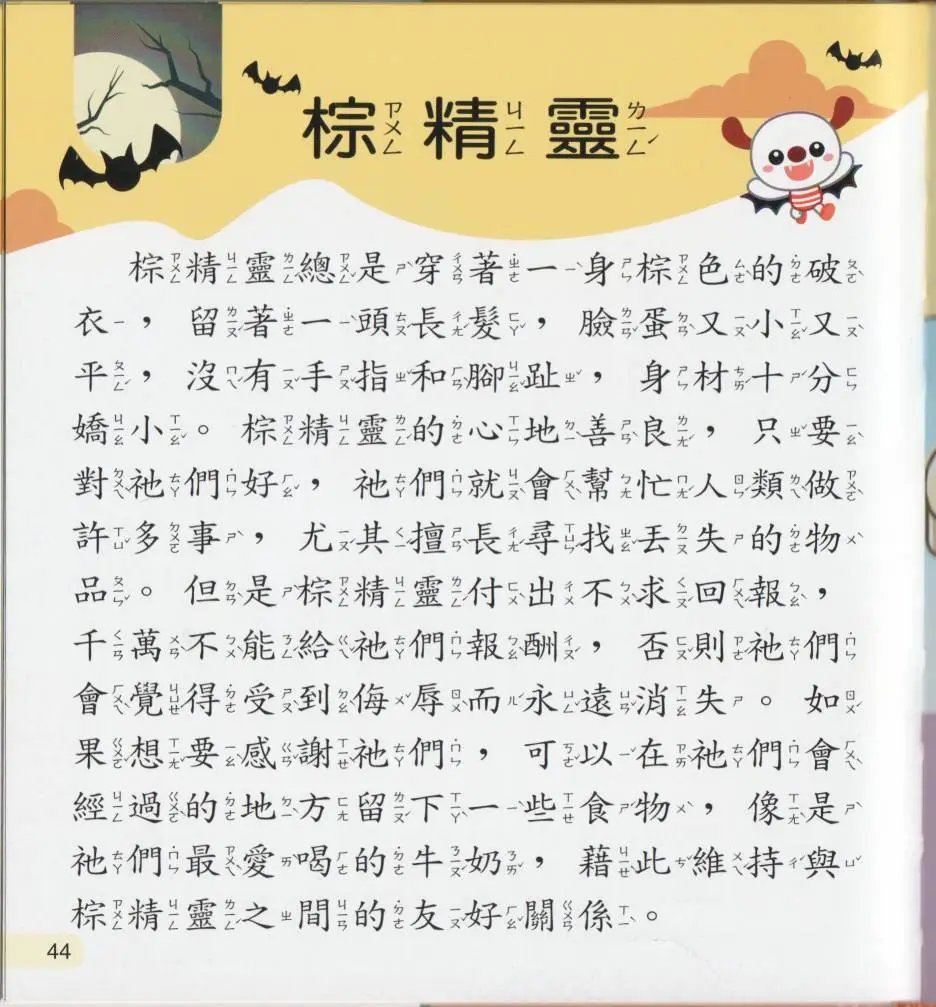 棕精靈
棕精靈總是穿著一身棕色的破
衣，留著一頭長髮，臉蛋又小又
平，沒有手指和腳趾，身材十分
嬌小。棕精靈的心地善良，只要
對祂們好，祂們就會幫忙人類做
許多事，尤其擅長尋找丟失的物
品。但是棕精靈付出不求回報，
千萬不能給祂們報酬，否則祂們
會覺得受到侮辱而永遠消失。如
果想要感謝祂們，可以在祂們會
經過的地方留下一些食物，像是
祂們最愛喝的牛奶，藉此維持與
棕精靈之間的友好關係。
44